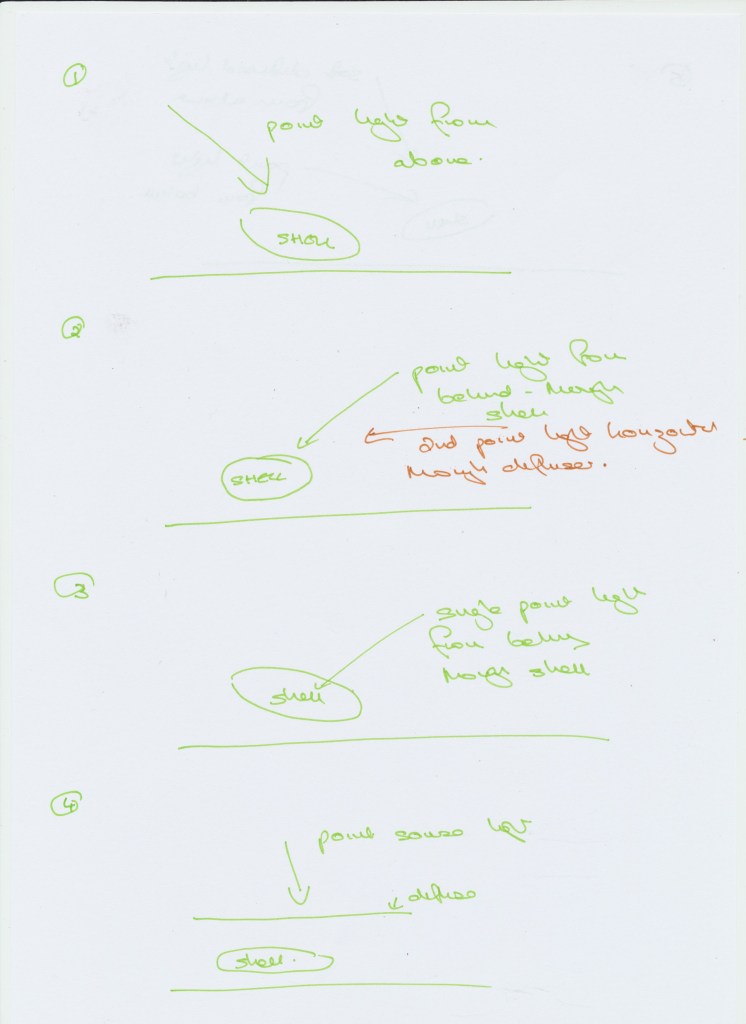 1
point light from
above.
SHELL
2
point light from
behind - through
shell
2nd point light horizontal
through defuser.
SHELL
3
single point light
from behind
through shell
shell
4
point source light
defuse
shell.